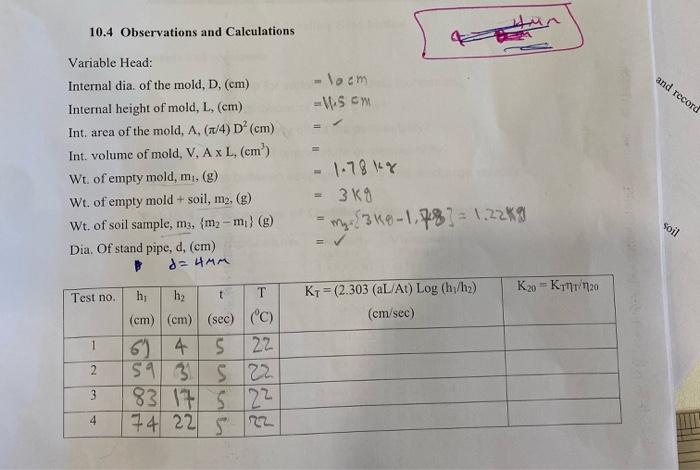 4mm
10.4 Observations and Calculations
Variable Head:
Internal dia. of the mold, D, (cm) = 10 cm
Internal height of mold, L, (cm) = 11.5 cm
Int. area of the mold, A, (π/4) D² (cm) = ✓
Int. volume of mold, V, A x L, (cm³) =
Wt. of empty mold, m₁, (g) = 1.78 kg
Wt. of empty mold + soil, m₂, (g) = 3 kg
Wt. of soil sample, m₃, {m₂ – m₁} (g) = m₃ = {3kg - 1.78} = 1.22 kg
Dia. Of stand pipe, d, (cm) = ✓
d = 4mm
and record
soil
Test no. h₁ (cm) h₂ (cm) t (sec) T (°C) K_T = (2.303 (aL/At) Log (h₁/h₂) (cm/sec) K₂₀ = K_Tη_T/η₂₀
1 69 4 5 22
2 59 3 5 22
3 83 17 5 22
4 74 22 5 22